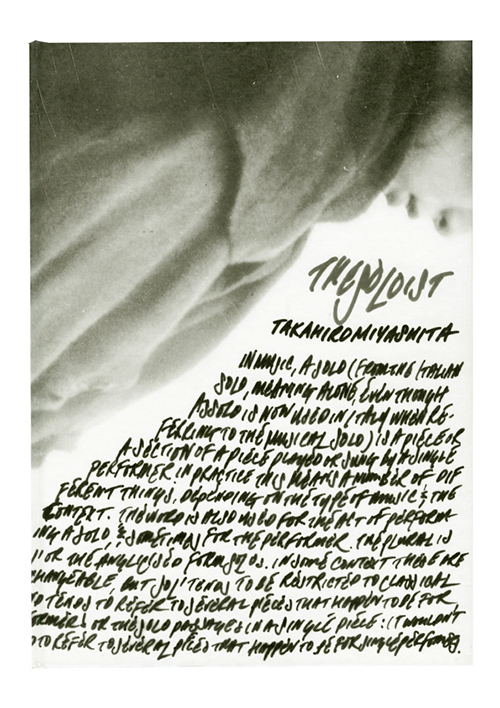 THE SOLOIST
TAKAHIROMIYASHITA
IN MUSIC, A SOLO (FROM THE ITALIAN
SOLO, MEANING ALONE, EVEN THOUGH
ASSOLO IS NOW USED IN ITALY WHEN RE-
FERRING TO THE MUSICAL SOLO) IS A PIECE OR
A SECTION OF A PIECE PLAYED OR SUNG BY A SINGLE
PERFORMER. IN PRACTICE THIS MEANS A NUMBER OF DIF
FERENT THINGS, DEPENDING ON THE TYPE OF MUSIC & THE
CONTEXT. THE WORD IS ALSO USED FOR THE ACT OF PERFORM-
ING A SOLO, & SOMETIMES FOR THE PERFORMER. THE PLURAL IS
OR THE ANGLICISED FORM SOLOS. IN SOME CONTEXT THESE ARE
CHANGEABLE, BUT SOLI TENDS TO BE RESTRICTED TO CLASSICAL
TO TENDS TO REFER TO SEVERAL PIECES THAT HAPPEN TO BE FOR
FORMERS OR THE SOLO PASSAGES IN A SINGLE PIECE: IT WOULDN'T
TO REFER TO SEVERAL PIECES THAT HAPPEN TO BE FOR SINGLE